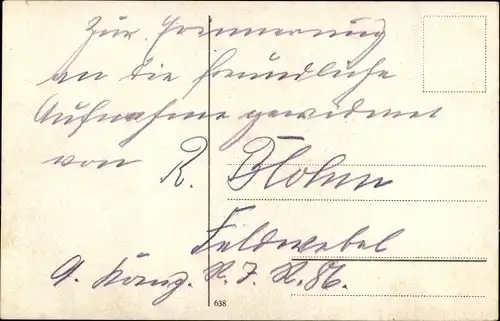 Zur Erinnerung
an die freundliche
Aufnahme gewidmet
von R.
Feldwebel
R. J. R. 86.
638